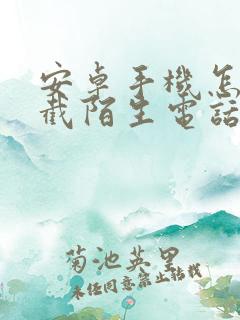 安卓手機怎
截陌生電話
菊池英里
未經同意禁止轉載